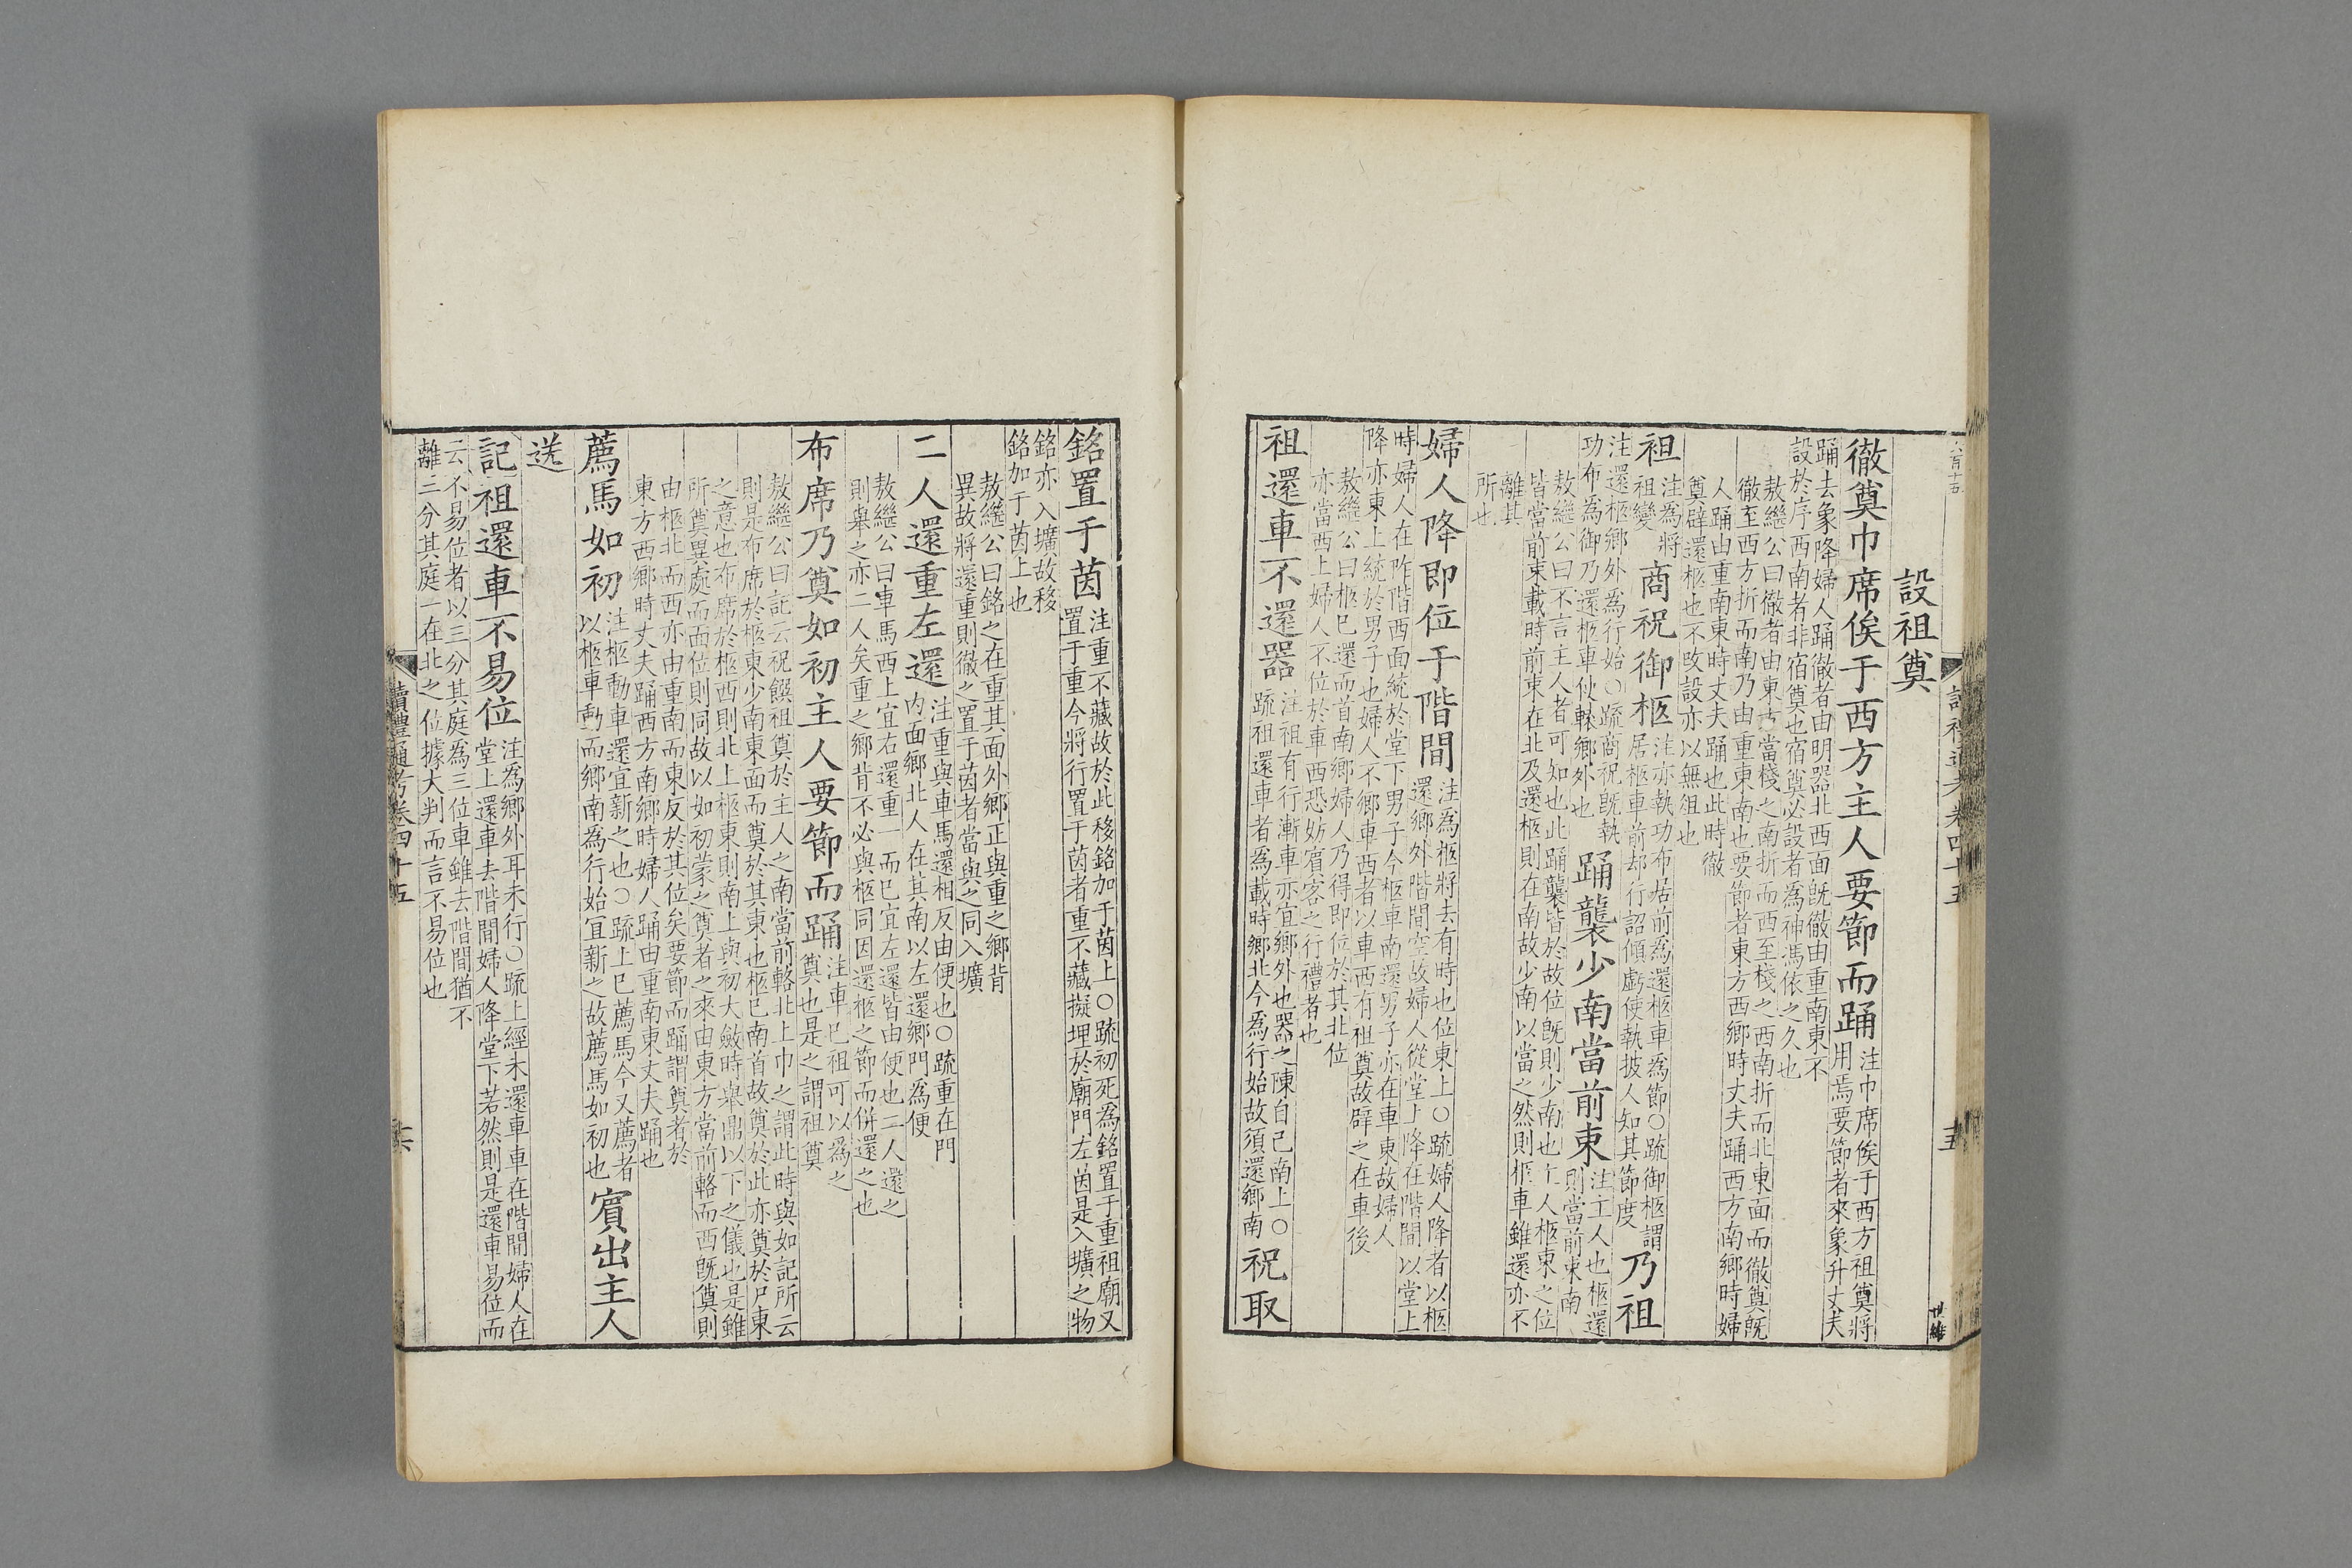 設祖奠
徹奠巾席俟于西方主人要節而踊
注巾席俟于西方祖奠將
用焉要節者來象升丈夫
踊去象降婦人踊徹者由明器北西面旣徹由重南東不
設於序西南者非宿奠也宿奠必設者為神馮依之久也
敖繼公曰徹者由東方當棧之南折而西至棧之西南折而北東面而徹奠旣
徹至西方折而南乃由重東南也要節者東方西鄉時丈夫踊西方南鄉時婦
人踊由重南東時丈夫踊也此時徹
奠辟還柩也不攺設亦以無俎也
袒
注為將
祖變
商祝御柩
注亦執功布居前為還柩車為節○疏御柩謂
居柩車前却行詔傾虧使執披人知其節度
乃祖
注還柩鄉外為行始○疏商祝旣執
功布為御乃還柩車使轅鄉外也
踊襲少南當前束
注主人也柩還
則當前束南
敖繼公曰不言主人者可知也此踊襲皆於故位旣則少南也主人柩東之位
皆當前束載時前束在北及還柩則在南故少南以當之然則柩車雖還亦不
離其
所也
婦人降即位于階間
注為柩將去有時也位東上○疏婦人降者以柩
還鄉外階間空故婦人從堂上降在階間以堂上
時婦人在阼階西面統於堂下男子今柩車南還男子亦在車東故婦人
降亦東上統於男子也婦人不鄉車西者以車西有祖奠故辟之在車後
敖繼公曰柩已還而首南鄉婦人乃得即位於其北位
亦當西上婦人不位於車西恐妨賓客之行禮者也
祖還車不還器
注祖有行漸車亦宜鄉外也器之陳自己南上○
疏祖還車者為載時鄉北今為行始故須還鄉南
祝取
銘置于茵
注重不藏故於此移銘加于茵上○疏初死為銘置于重祖廟又
置于重今將行置于茵者重不藏擬埋於廟門左茵是入壙之物
銘亦入壙故移
銘加于茵上也
敖繼公曰銘之在重其面外鄉正與重之鄉背
異故將還重則徹之置于茵者當與之同入壙
二人還重左還
注重與車馬還相反由便也○疏重在門
内面鄉北人在其南以左還鄉門為便
敖繼公曰車馬西上宜右還重一而已宜左還皆由便也二人還之
則舉之亦二人矣重之鄉背不必與柩同因還柩之節而併還之也
布席乃奠如初主人要節而踊
注車已祖可以為之
奠也是之謂祖奠
敖繼公曰記云祝饌祖奠於主人之南當前輅北上巾之謂此時與如記所云
則是布席於柩東少南東面而奠於其東也柩已南首故奠於此亦奠於尸東
之意也布席於柩西則北上柩東則南上與初大斂時舉鼎以下之儀也是雖
所奠異處而面位則同故以如初蒙之奠者之來由東方當前輅而西旣奠則
由柩北而西亦由重南而東反於其位矣要節而踊謂奠者於
東方西鄉時丈夫踊西方南鄉時婦人踊由重南東丈夫踊也
薦馬如初
注柩動車還宜新之也○疏上已薦馬今又薦者
以柩車動而鄉南為行始宜新之故薦馬如初也
賓出主人
送
記祖還車不易位
注為鄉外耳未行○疏上經未還車車在階間婦人在
堂上還車去階間婦人降堂下若然則是還車易位而
云不易位者以三分其庭為三位車雖去階間猶不
離三分其庭一在北之位據大判而言不易位也
讀禮通考卷四十五
十六
讀禮通考卷四十五
十五
世繡